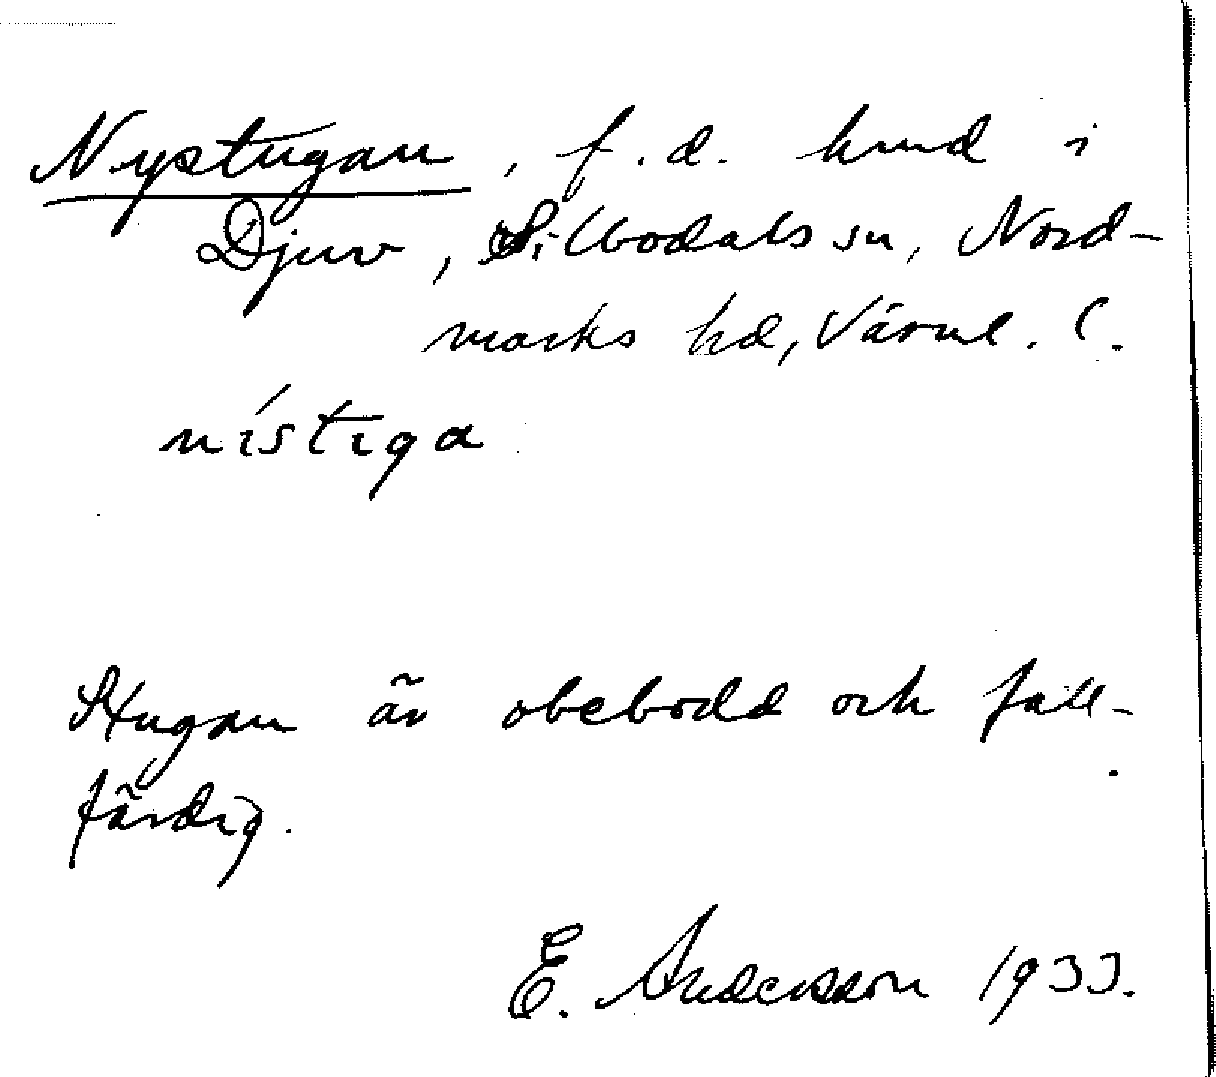 Nystugan, f.d. hmd i
Djuv, Silbodals sn, Nord-
marks hd, Värml. l.
nístiga
Stugan är obebodd och fall-
färdig.
E. Andersson 1933.